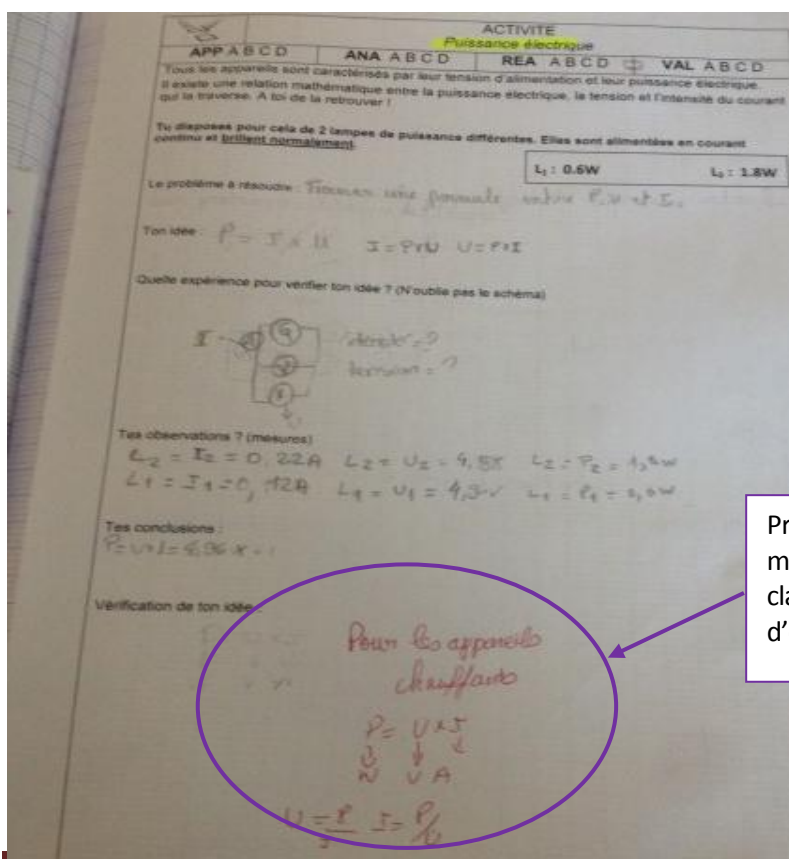 ACTIVITE
Puissance électrique
APP A B C D ANA A B C D REA A B C D VAL A B C D
Tous les appareils sont caractérisés par leur tension d'alimentation et leur puissance électrique.
Il existe une relation mathématique entre la puissance électrique, la tension et l'intensité du courant
qui la traverse. A toi de la retrouver !
Tu disposes pour cela de 2 lampes de puissance différentes. Elles sont alimentées en courant
continu et brillent normalement.
L₁ : 0.6W L₂ : 1.8W
Le problème à résoudre : Trouver une formule entre P, U et I.
Ton idée : P = I x U I = P×U U = P×I
Quelle expérience pour vérifier ton idée ? (N'oublie pas le schéma)
I
G
= ?
tension = ?
Tes observations ? (mesures)
L2 = I2 = 0,22A L2 = U2 = L2 = P2 = 1,8W
L1 = I1 = 0,12A L1 = U1 = L1 = P1 = 0,6W
Tes conclusions :
P = U×I =
Vérification de ton idée :
Pour les appareils
chauffants
P = U×I
W V A
U = P/I I = P/U
Pr
m
cla
d'